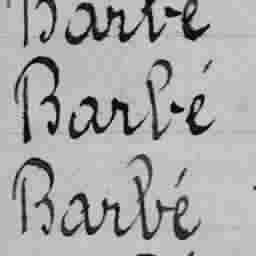 Barbé
Barbé
Barbé